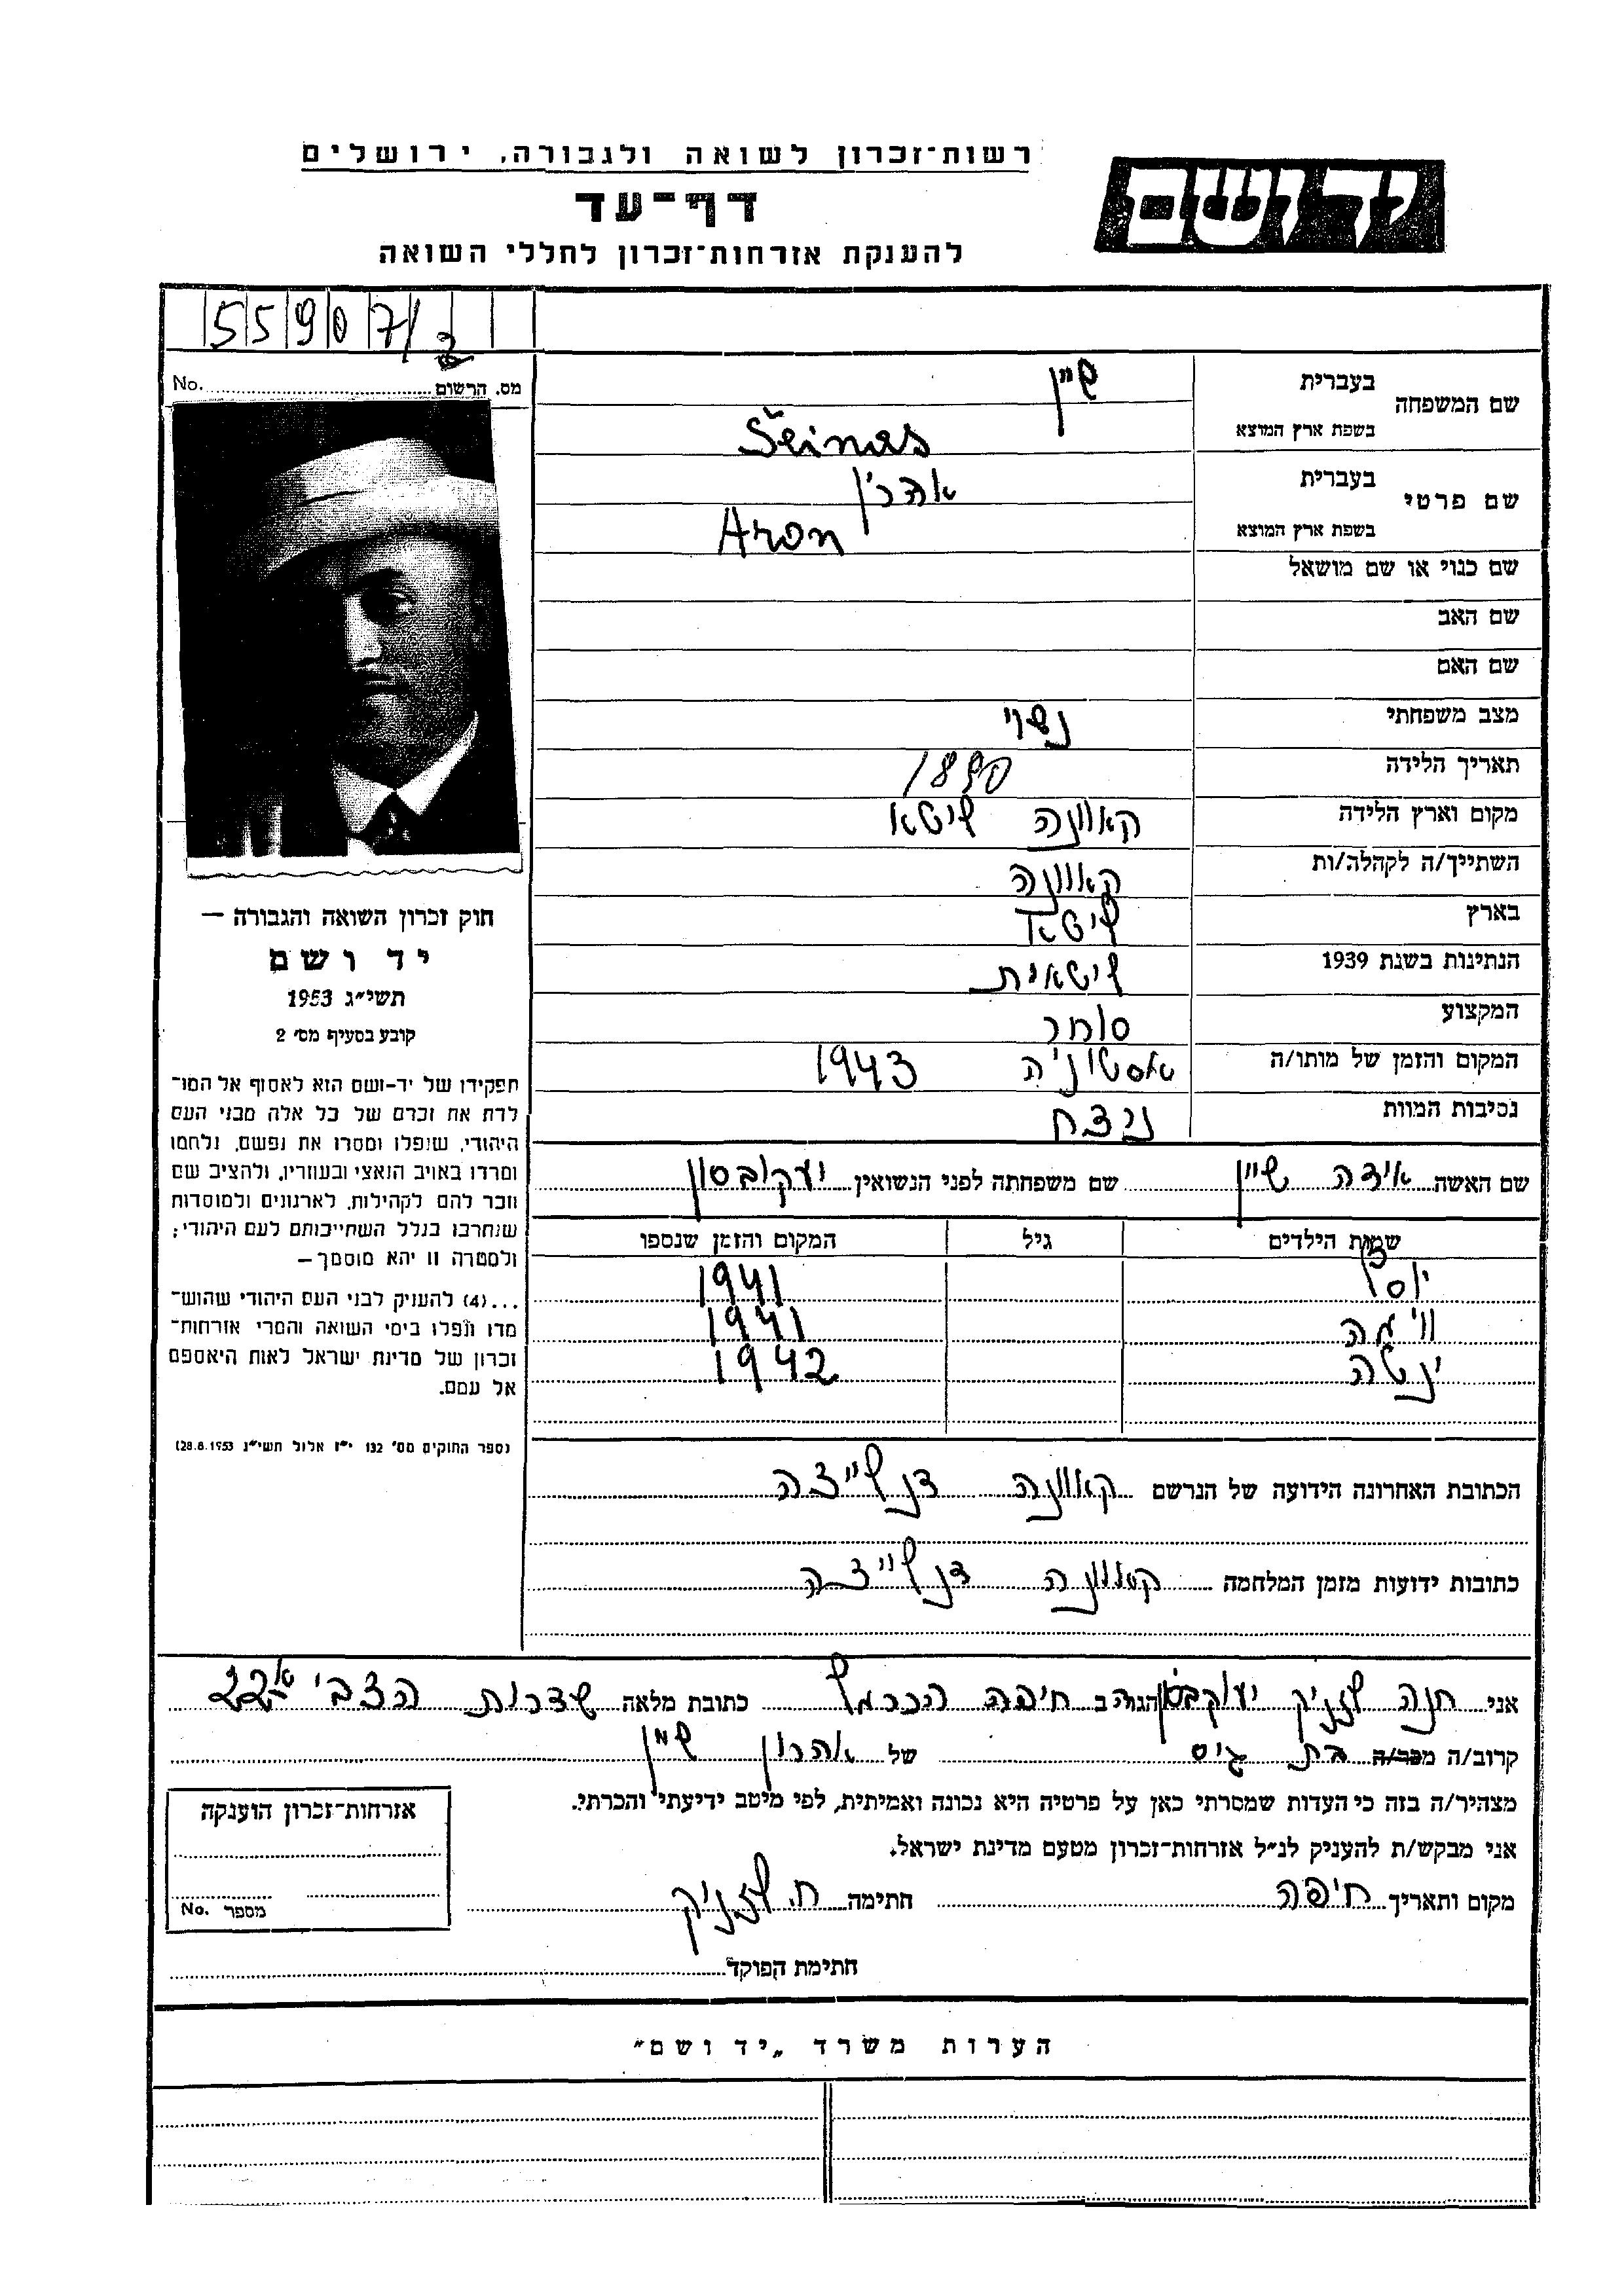 רשות־זכרון לשואה ולגבורה, ירושלים
יד ושם
דף־עד
להענקת אזרחות־זכרון לחללי השואה
55907/2
מס. הרשום No.
שם המשפחה בעברית שיין
בשפת ארץ המוצא Šeinas
שם פרטי בעברית אהרון
בשפת ארץ המוצא Aron
שם כנוי או שם מושאל
שם האב
שם האם
מצב משפחתי נשוי
תאריך הלידה 1890
מקום וארץ הלידה קאוונה ליטא
השתייך/ה לקהלה/ות קאוונה
בארץ ליטא
הנתינות בשנת 1939 ליטאית
המקצוע סוחר
המקום והזמן של מותו/ה אסטוניה 1943
נסיבות המוות נרצח
חוק זכרון השואה והגבורה —
יד ושם
תשי״ג 1953
קובע בסעיף מס׳ 2
תפקידו של יד-ושם הוא לאסוף אל המו־
לדת את זכרם של כל אלה מבני העם
היהודי, שנפלו ומסרו את נפשם, נלחמו
ומרדו באויב הנאצי ובעוזריו, ולהציב שם
וזכר להם לקהילות, לארגונים ולמוסדות
שנחרבו בגלל השתייכותם לעם היהודי;
ולמטרה זו יהא מוסמך —
...(4) להעניק לבני העם היהודי שהוש־
מדו ונפלו בימי השואה והמרי אזרחות־
זכרון של מדינת ישראל לאות היאספם
אל עמם.
(ספר החוקים מס׳ 132 י״ז אלול תשי״ג 28.8.1953)
שם האשה אידה שיין שם משפחתה לפני הנשואין יעקובסון
שמות הילדים גיל המקום והזמן שנספו
יוסף 1941
1941
יטה 1942
הכתובת האחרונה הידועה של הנרשם קאוונה
כתובות ידועות מזמן המלחמה קאוונה
אני חנה יעקובסון הגר/ה ב חיפה הכרמל כתובת מלאה שדרות הצבי 22א
קרוב/ה מכר/ה בת גיס של אהרון שיין
מצהיר/ה בזה כי העדות שמסרתי כאן על פרטיה היא נכונה ואמיתית, לפי מיטב ידיעתי והכרתי.
אני מבקש/ת להעניק לנ״ל אזרחות־זכרון מטעם מדינת ישראל.
מקום ותאריך חיפה חתימה ח.
חתימת הפוקד
אזרחות־זכרון הוענקה
מספר No.
הערות משרד „יד ושם״